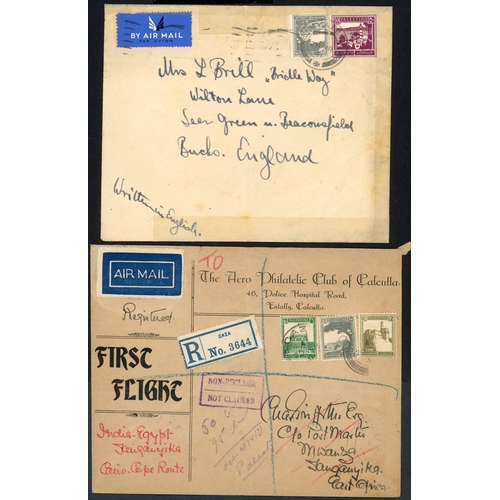 BY AIR MAIL
PAR AVION
PALESTINE
Mrs L Brill "Bridle Way"
Wilton Lane
Seer Green n. Beaconsfield
Bucks. England
Written in English.
TO
AIR MAIL
The Aero Philatelic Club of Calcutta
46, Police Hospital Road,
Entally, Calcutta.
Registered
GAZA
R No. 3644
FIRST
FLIGHT
NOT CLAIMED
India-Egypt
Tanganyika
Cairo-Cape Route
c/o Post Master
Mwanza
Tanganyika
East Africa